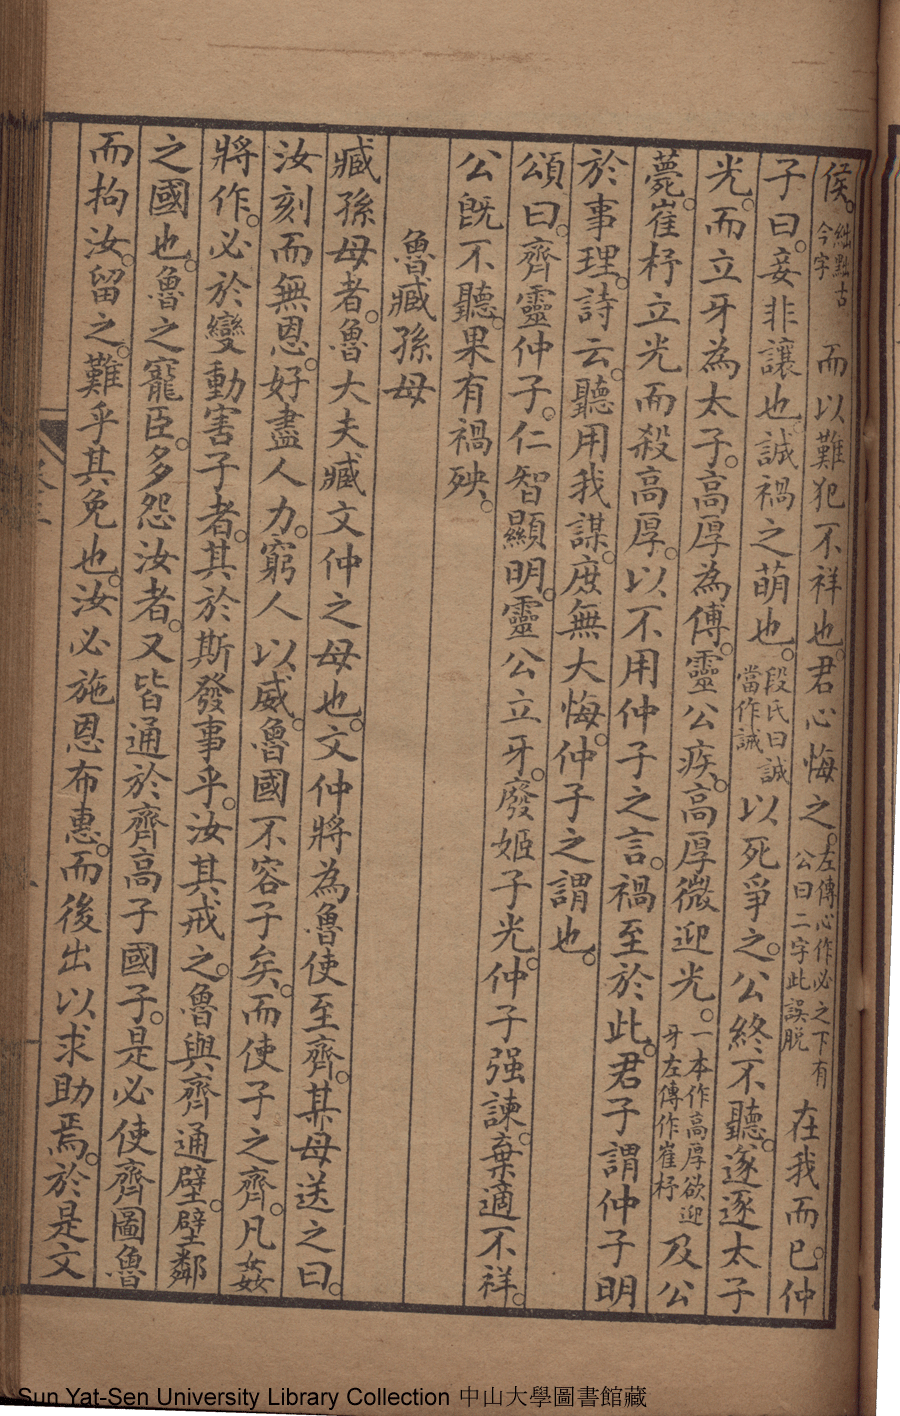 侯。絀黜古今字而以難犯不祥也。君必悔之。左傳心作必之下有公曰二字此誤脫在我而已。仲
子曰。妾非讓也誠禍之萌也。段氏曰誠當作誡以死爭之。公終不聽。遂逐太子
光。而立牙為太子。高厚為傅。靈公疾。高厚微迎光。一本作高厚欲迎牙左傳作崔杼及公
薨。崔杼立光而殺高厚。以不用仲子之言。禍至於此。君子謂仲子明
於事理。詩云。聽用我謀。庶無大悔。仲子之謂也。
頌曰。齊靈仲子。仁智顯明。靈公立牙。廢姬子光。仲子强諫。棄適不祥。
公既不聽。果有禍殃。
魯臧孫母
臧孫母者。魯大夫臧文仲之母也。文仲將為魯使至齊。其母送之曰。
汝刻而無恩。好盡人力。窮人以威。魯國不容子矣。而使子之齊。凡姦
將作。必於變動害子者。其於斯發事乎。汝其戒之。魯與齊通壁。壁鄰
之國也。魯之寵臣。多怨汝者。又皆通於齊高子國子。是必使齊圖魯
而拘汝。留之。難乎其免也。汝必施恩布惠。而後出以求助焉。於是文
Sun Yat-Sen University Library Collection 中山大學圖書館藏